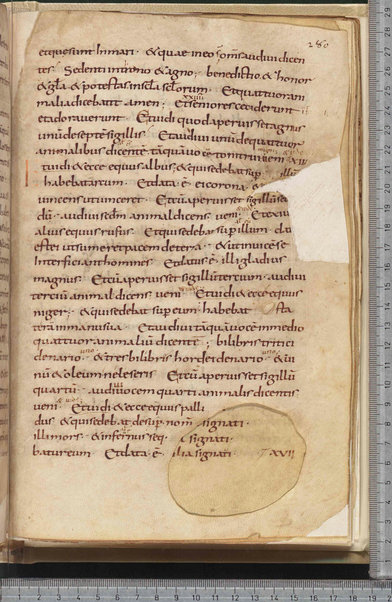 280
et que sunt In mari · & quae In eo om̄s audiui dicen
tes · Sedenti In trono & agno · benedictio & honor
& gła & potestas In scła scłorum · Et quattuor ani
malia dicebant amen · Et seniores ceciderunt
et adorauerunt · Et uidi quod aperuisset agnus
unū de septē sigillis · Et audiui unū de quattuor
animalibus dicentē tāquā uocē tonitrui ueni
& uidi & ecce equus albus · & qui sedebat sup
habebat arcum · Et data · ē · ei corona · &
uincens ut uinceret · Et cū aperuisset sigillū se
dū · audiui secdm̄ animal dicens ueni · Et exiu
alius equus rufus · Et qui sedebat sup illum · da
est ei ut sumeret pacem de terra · & ut inuicē se
Interficiant homines · Et datus · ē · illi gladius
magnus · Et cū aperuisset sigillū tertium · audiui
tertiū animal dicens · ueni · Et uidi & ecce equus
niger · & qui sedebat sup eum habebat sta
terā In manu sua · Et audiui tāquā uocē In medio
quattuor animaliū dicente · bilibris tritici
denario · & tres bilibris hordei denario · & ui
nū & oleum ne leseris · Et cū aperuisset sigillū
quartū · audiui uocem quarti animalis dicentis
ueni · Et uidi & ecce equus palli
dus · & qui sedebat desup · nom̄ signati ·
illi mors · & Infernus seq signati ·
batur eum · Et data · ē · ilia signati · XVII